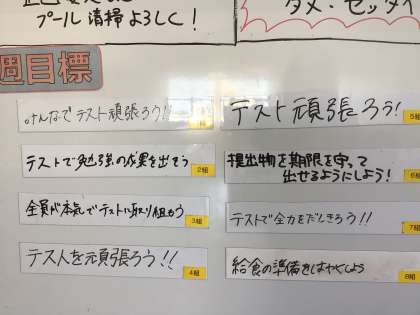 プール清掃よろしく!
ダメ・ゼッタイ
週目標
みんなでテスト頑張ろう!!
テストで勉強の成果を出そう
2組
全員が本気でテストに取り組もう
3組
テスト人を頑張ろう!!
4組
テスト頑張ろう!
5組
提出物を期限を守って
出せるようにしよう!
6組
テストで全力をだしきろう!!
7組
給食の準備をはやくしよう
8組